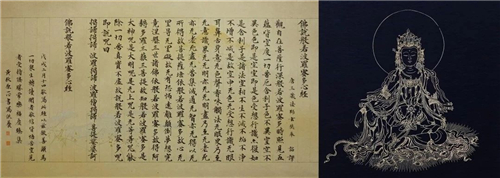 佛說般若波羅蜜多心經
觀自在菩薩行深般若波羅蜜多時照見五
蘊皆空度一切苦厄舍利子色不異空空不
異色色即是空空即是色受想行識亦復如
是舍利子是諸法空相不生不滅不垢不淨
不增不減是故空中无色无受想行識无眼
耳鼻舌身意无色聲香味觸法无眼界乃至
无意識界无无明亦无无明盡乃至无老死
亦无老死盡无苦集滅道无智亦无得以无
所得故菩提薩埵依般若波羅蜜多故心无
罣礙无罣礙故无有恐怖遠離顛倒夢想究
竟涅槃三世諸佛依般若波羅蜜多故得阿
耨多羅三藐三菩提故知般若波羅蜜多是
大神咒是大明咒是无上咒是无等等咒能
除一切苦真實不虛故說般若波羅蜜多咒
即說咒曰
揭諦揭諦 波羅揭諦 波羅僧揭諦 菩提薩婆訶
佛說般若波羅蜜多心經